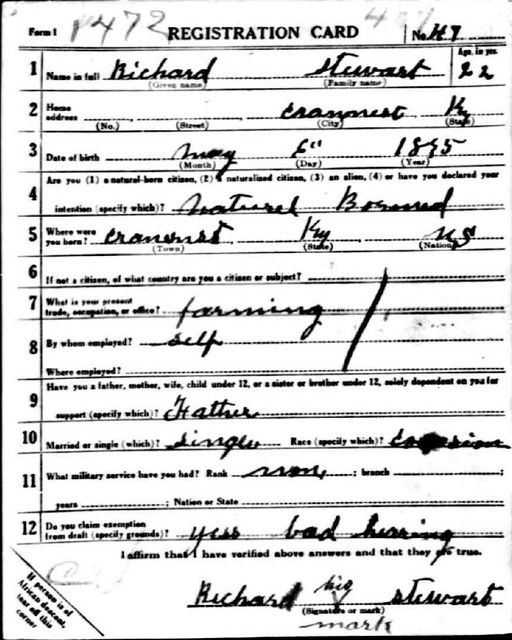 Form 1 1472 REGISTRATION CARD No. 47
Age, in yrs.
1 Name in full Richard Stewart 22
(Given name) (Family name)
2 Home address Crannest Ky
(No.) (Street) (City) (State)
3 Date of birth May 6" 1895
(Month) (Day) (Year)
Are you (1) a natural-born citizen, (2) a naturalized citizen, (3) an alien, (4) or have you declared your
4 intention (specify which)? Naturel Borned
5 Where were you born? Crannest Ky US
(Town) (State) (Nation)
6 If not a citizen, of what country are you a citizen or subject?
7 What is your present trade, occupation, or office? farming
8 By whom employed? self
Where employed?
Have you a father, mother, wife, child under 12, or a sister or brother under 12, solely dependent on you for
9 support (specify which)? Father
10 Married or single (which)? Single Race (specify which)?
11 What military service have you had? Rank non ; branch ;
years ; Nation or State
12 Do you claim exemption from draft (specify grounds)? yess bad herring
I affirm that I have verified above answers and that they are true.
Richard his X Stewart
(Signature or mark)
mark
If person is of African descent, tear off this corner